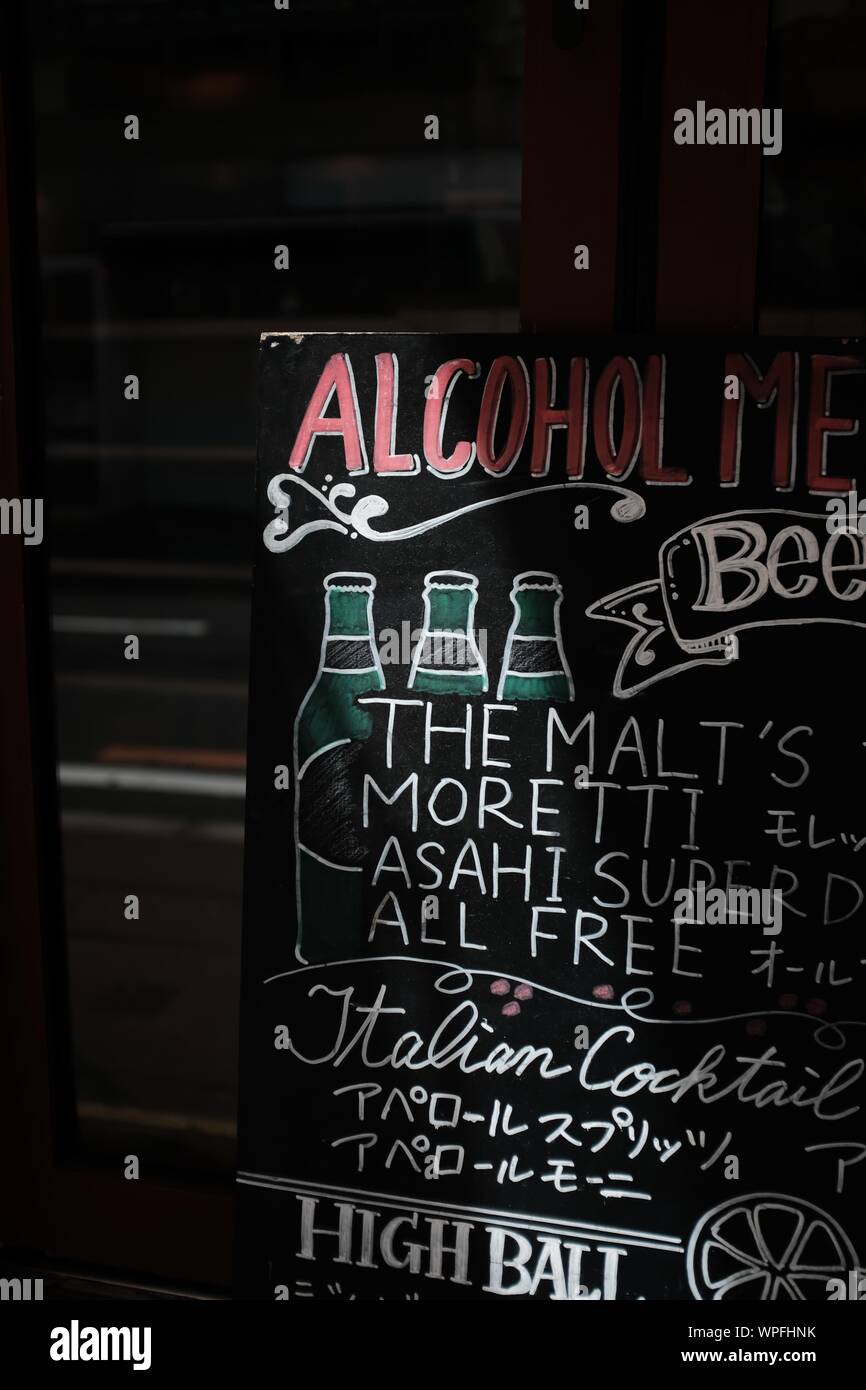 alamy
ALCOHOL ME
Bee
THE MALT'S
MORETTI モレッ
ASAHI SUPER D
ALL FREE オール
Italian Cocktail
アペロールスプリッツ
アペロールモーニ ア
HIGH BALL
alamy
Image ID: WPFHNK
www.alamy.com